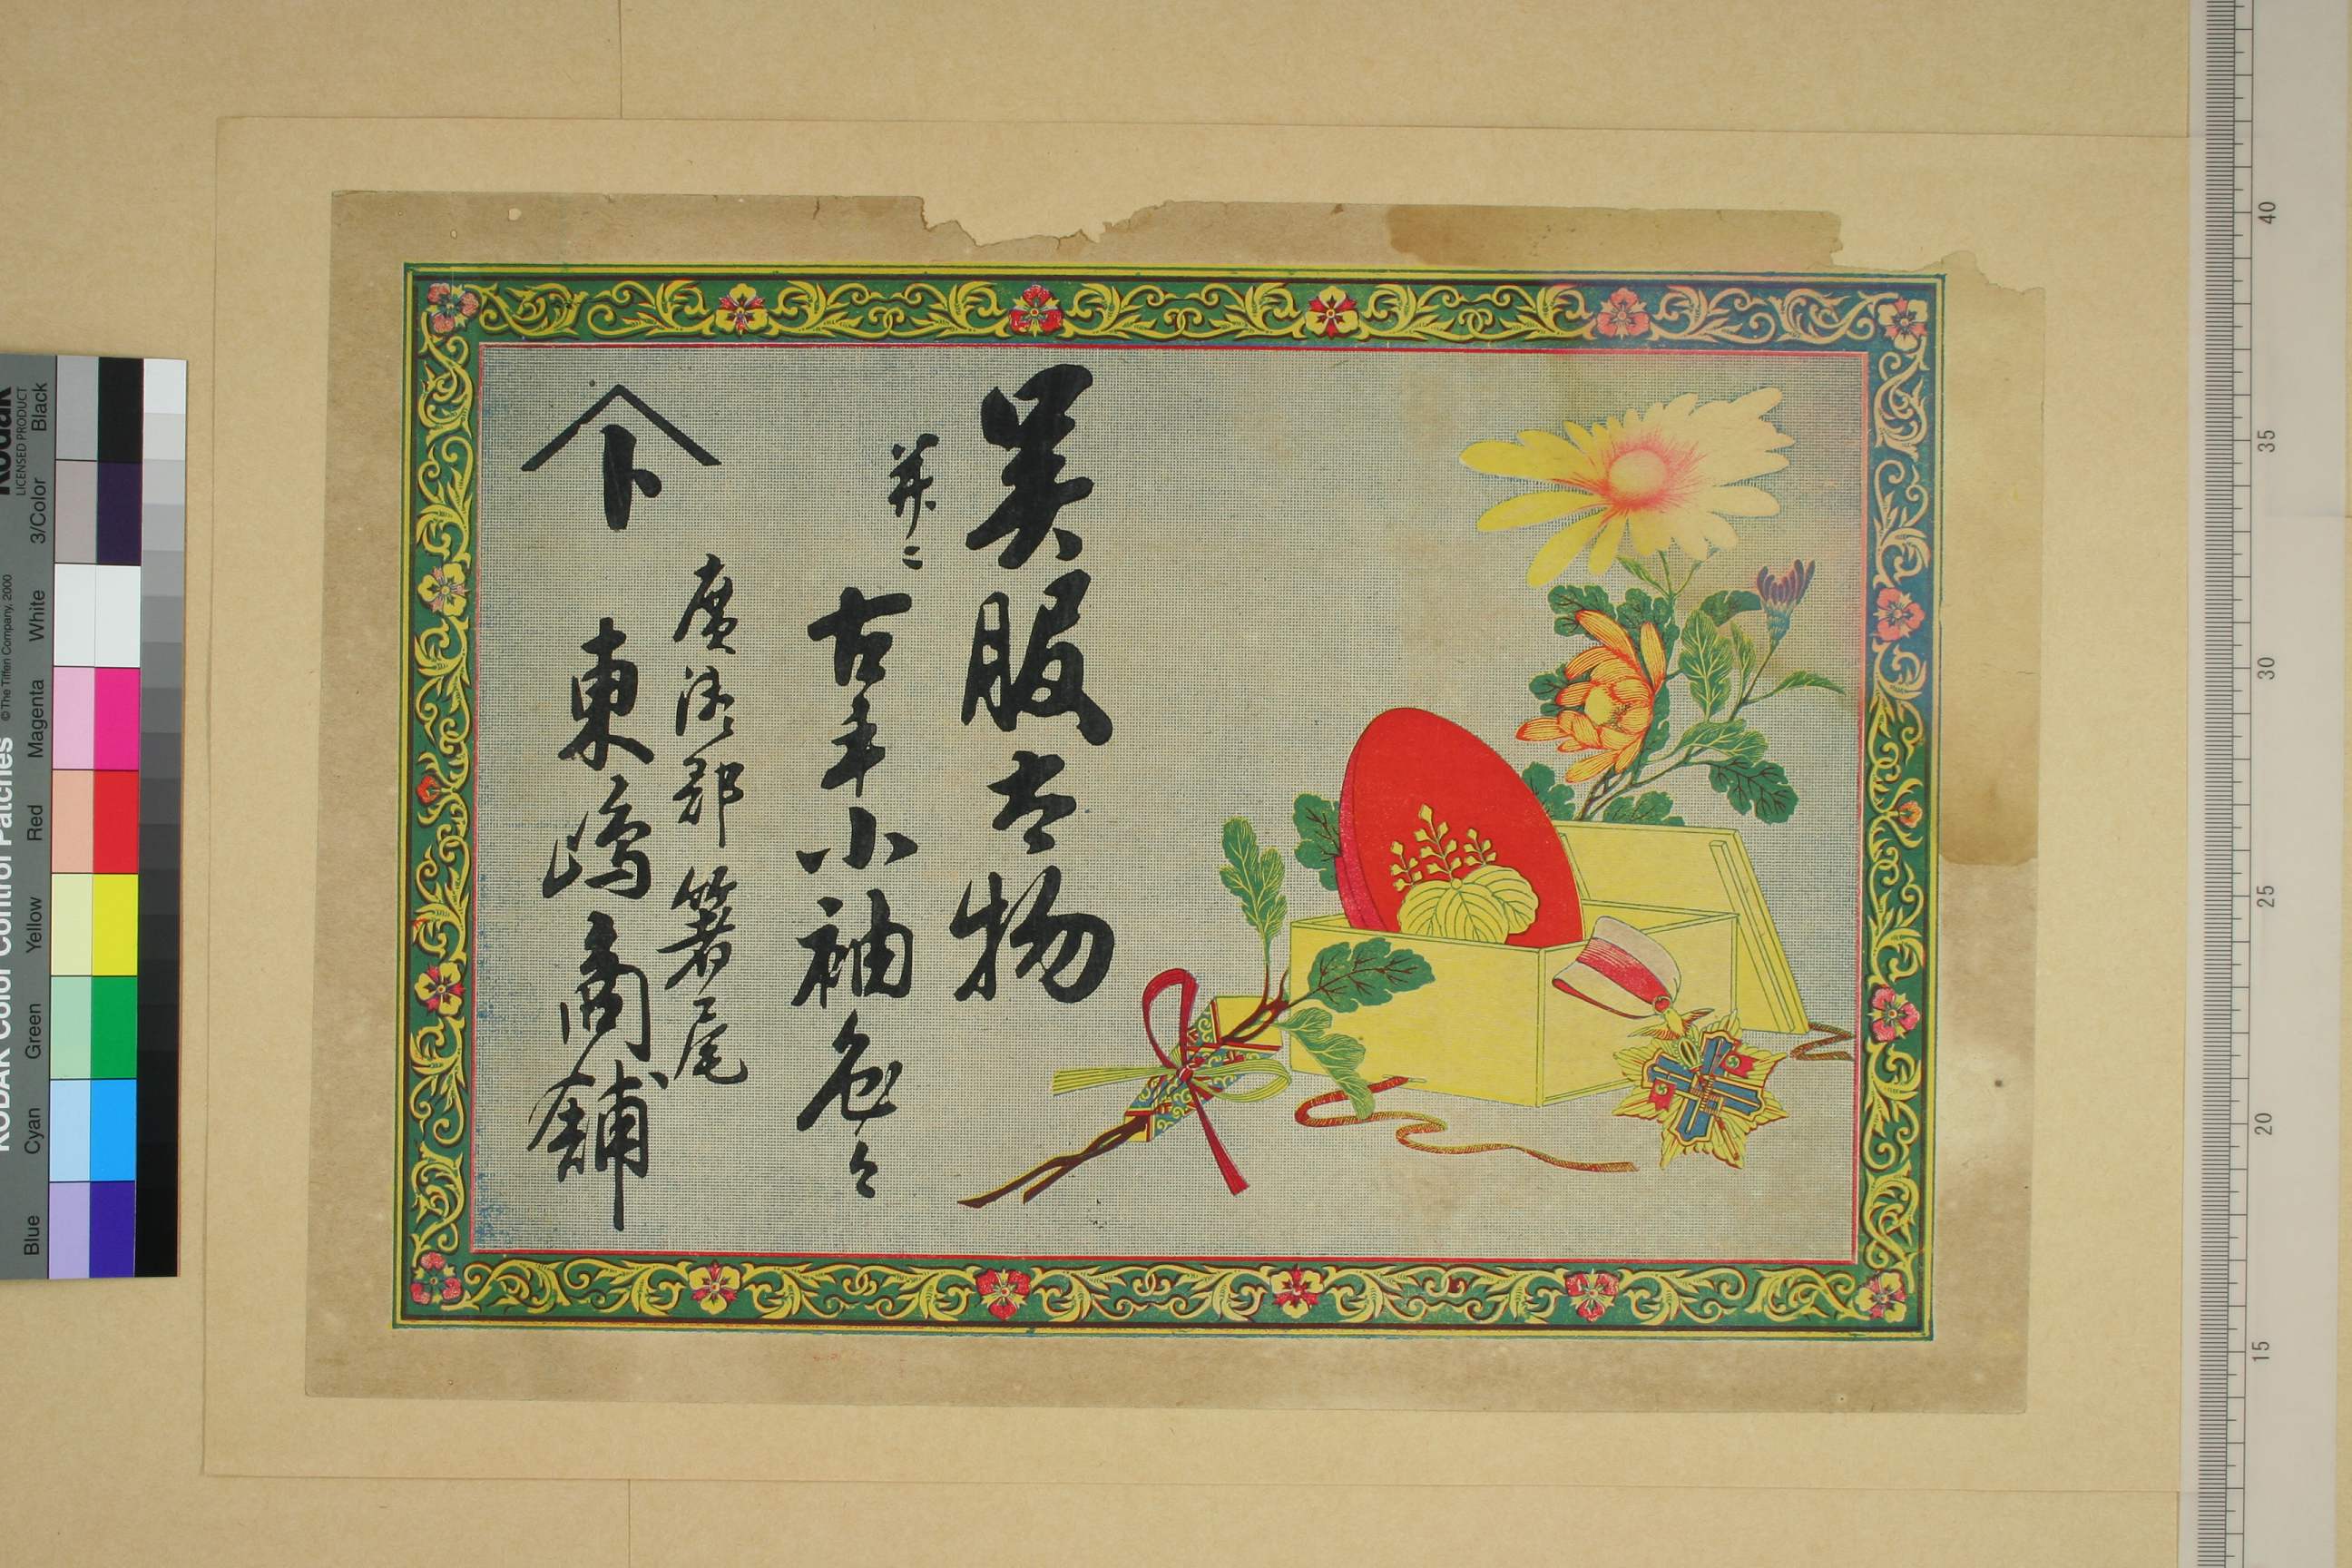 呉服太物
並ニ
古手小袖色々
廣瀬郡箸尾
卜
東嶋商舗
KODAK Color Control Patches
© The Tiffen Company, 2000
Kodak
LICENSED PRODUCT
Blue Cyan Green Yellow Red Magenta White 3/Color Black
40
35
30
25
20
15